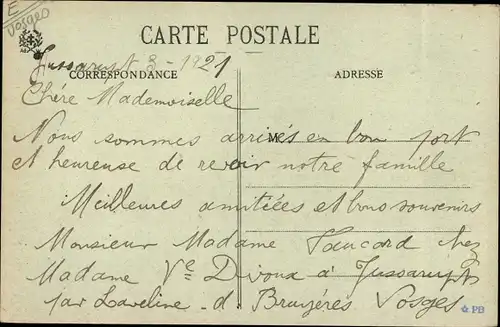 E
Vosges
CARTE POSTALE
Jussarupt 3 - 1921
CORRESPONDANCE
ADRESSE
Chére Mademoiselle
M
Nous sommes arrivés en bon port
et heureuse de revoir notre famille
Meilleures amitiées et bons souvenirs
Monsieur Madame Vaucard chez
Madame Vᵉ Divoux à Jussarupt
par Laveline - d Bruyéres Vosges
PB